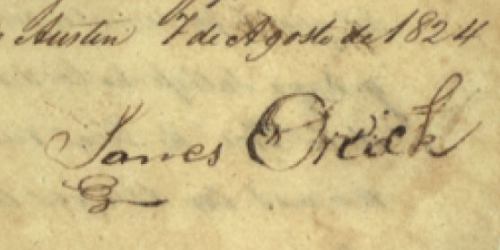 Austin 7 de Agosto de 1824
James Orrick